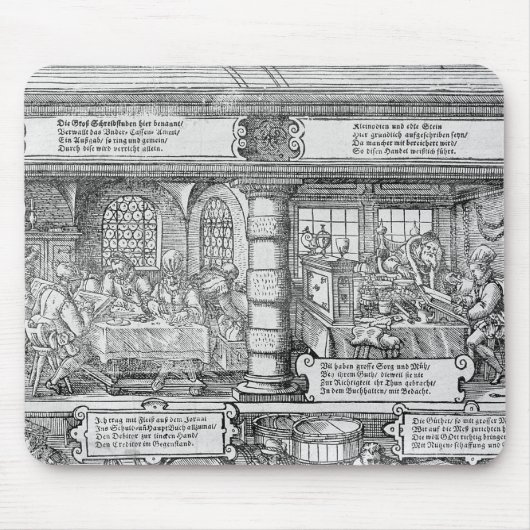 Die Groß Schreibstuben hier benannt/
Verwalt das Under Cassen Ampt/
Ein Außgab/ so ring und gemein/
Durch dise wird verricht allein.
Kleinodien und edle Stein
Hier gründlich aufgeschriben seyn/
Da mancher mit bereichert wird/
So disen Handel weißlich führt.
Vil haben grosse Sorg und Müh/
Bey ihrem Guth/ dieweil sie nie
Zur Richtigkeit ihr Thun gebracht/
In dem Buchhalten/ mit Bedacht.
Ich trag mit Fleiß auf dem Jornal
Ins Schuld- uñ Haupt Buch allzumal/
Den Debitor zur lincken Hand/
Den Creditor im Gegenstand.
Die Güther/ so mit grosser M
Wir auf die Meß zurichten h
Die wöll Gott richtig bringen
Mit Nutzen- schaffung und